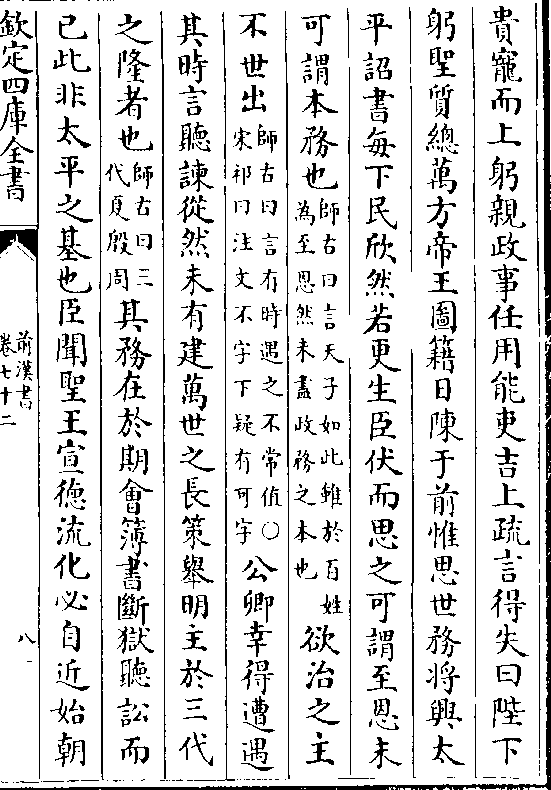 貴寵而上躬親政事任用能吏吉上疏言得失曰陛下
躬聖質總萬方帝王圖籍日陳于前惟思世務將興太
平詔書每下民欣然若更生臣伏而思之可謂至恩未
可謂本務也師古曰言天子如此雖於百姓為至恩然未盡政務之本也欲治之主
不世出師古曰言有時遇之不常值〇宋祁曰注文不字下疑有可字公卿幸得遭遇
其時言聽諫從然未有建萬世之長策舉明主於三代
之隆者也師古曰三代夏殷周其務在於期會簿書斷獄聽訟而
已此非太平之基也臣聞聖王宣德流化必自近始朝
欽定四庫全書
前漢書
卷七十二
八